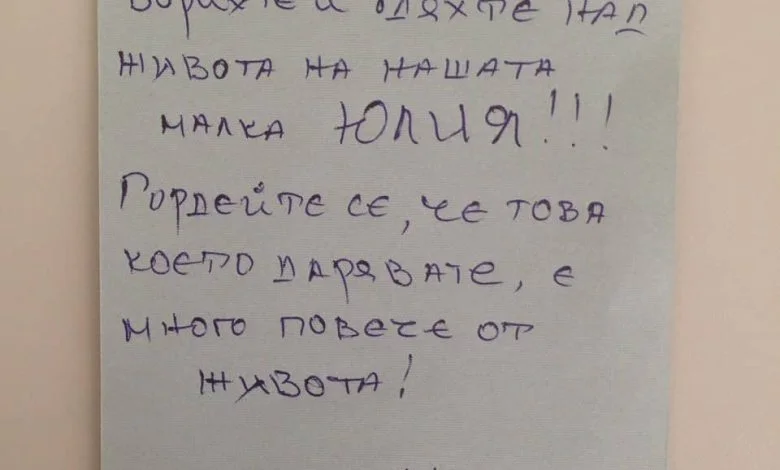 и бдяхте над
живота на нашата
малка Юлия!!!
Гордейте се, че това
което дарявате, е
много повече от
живота!